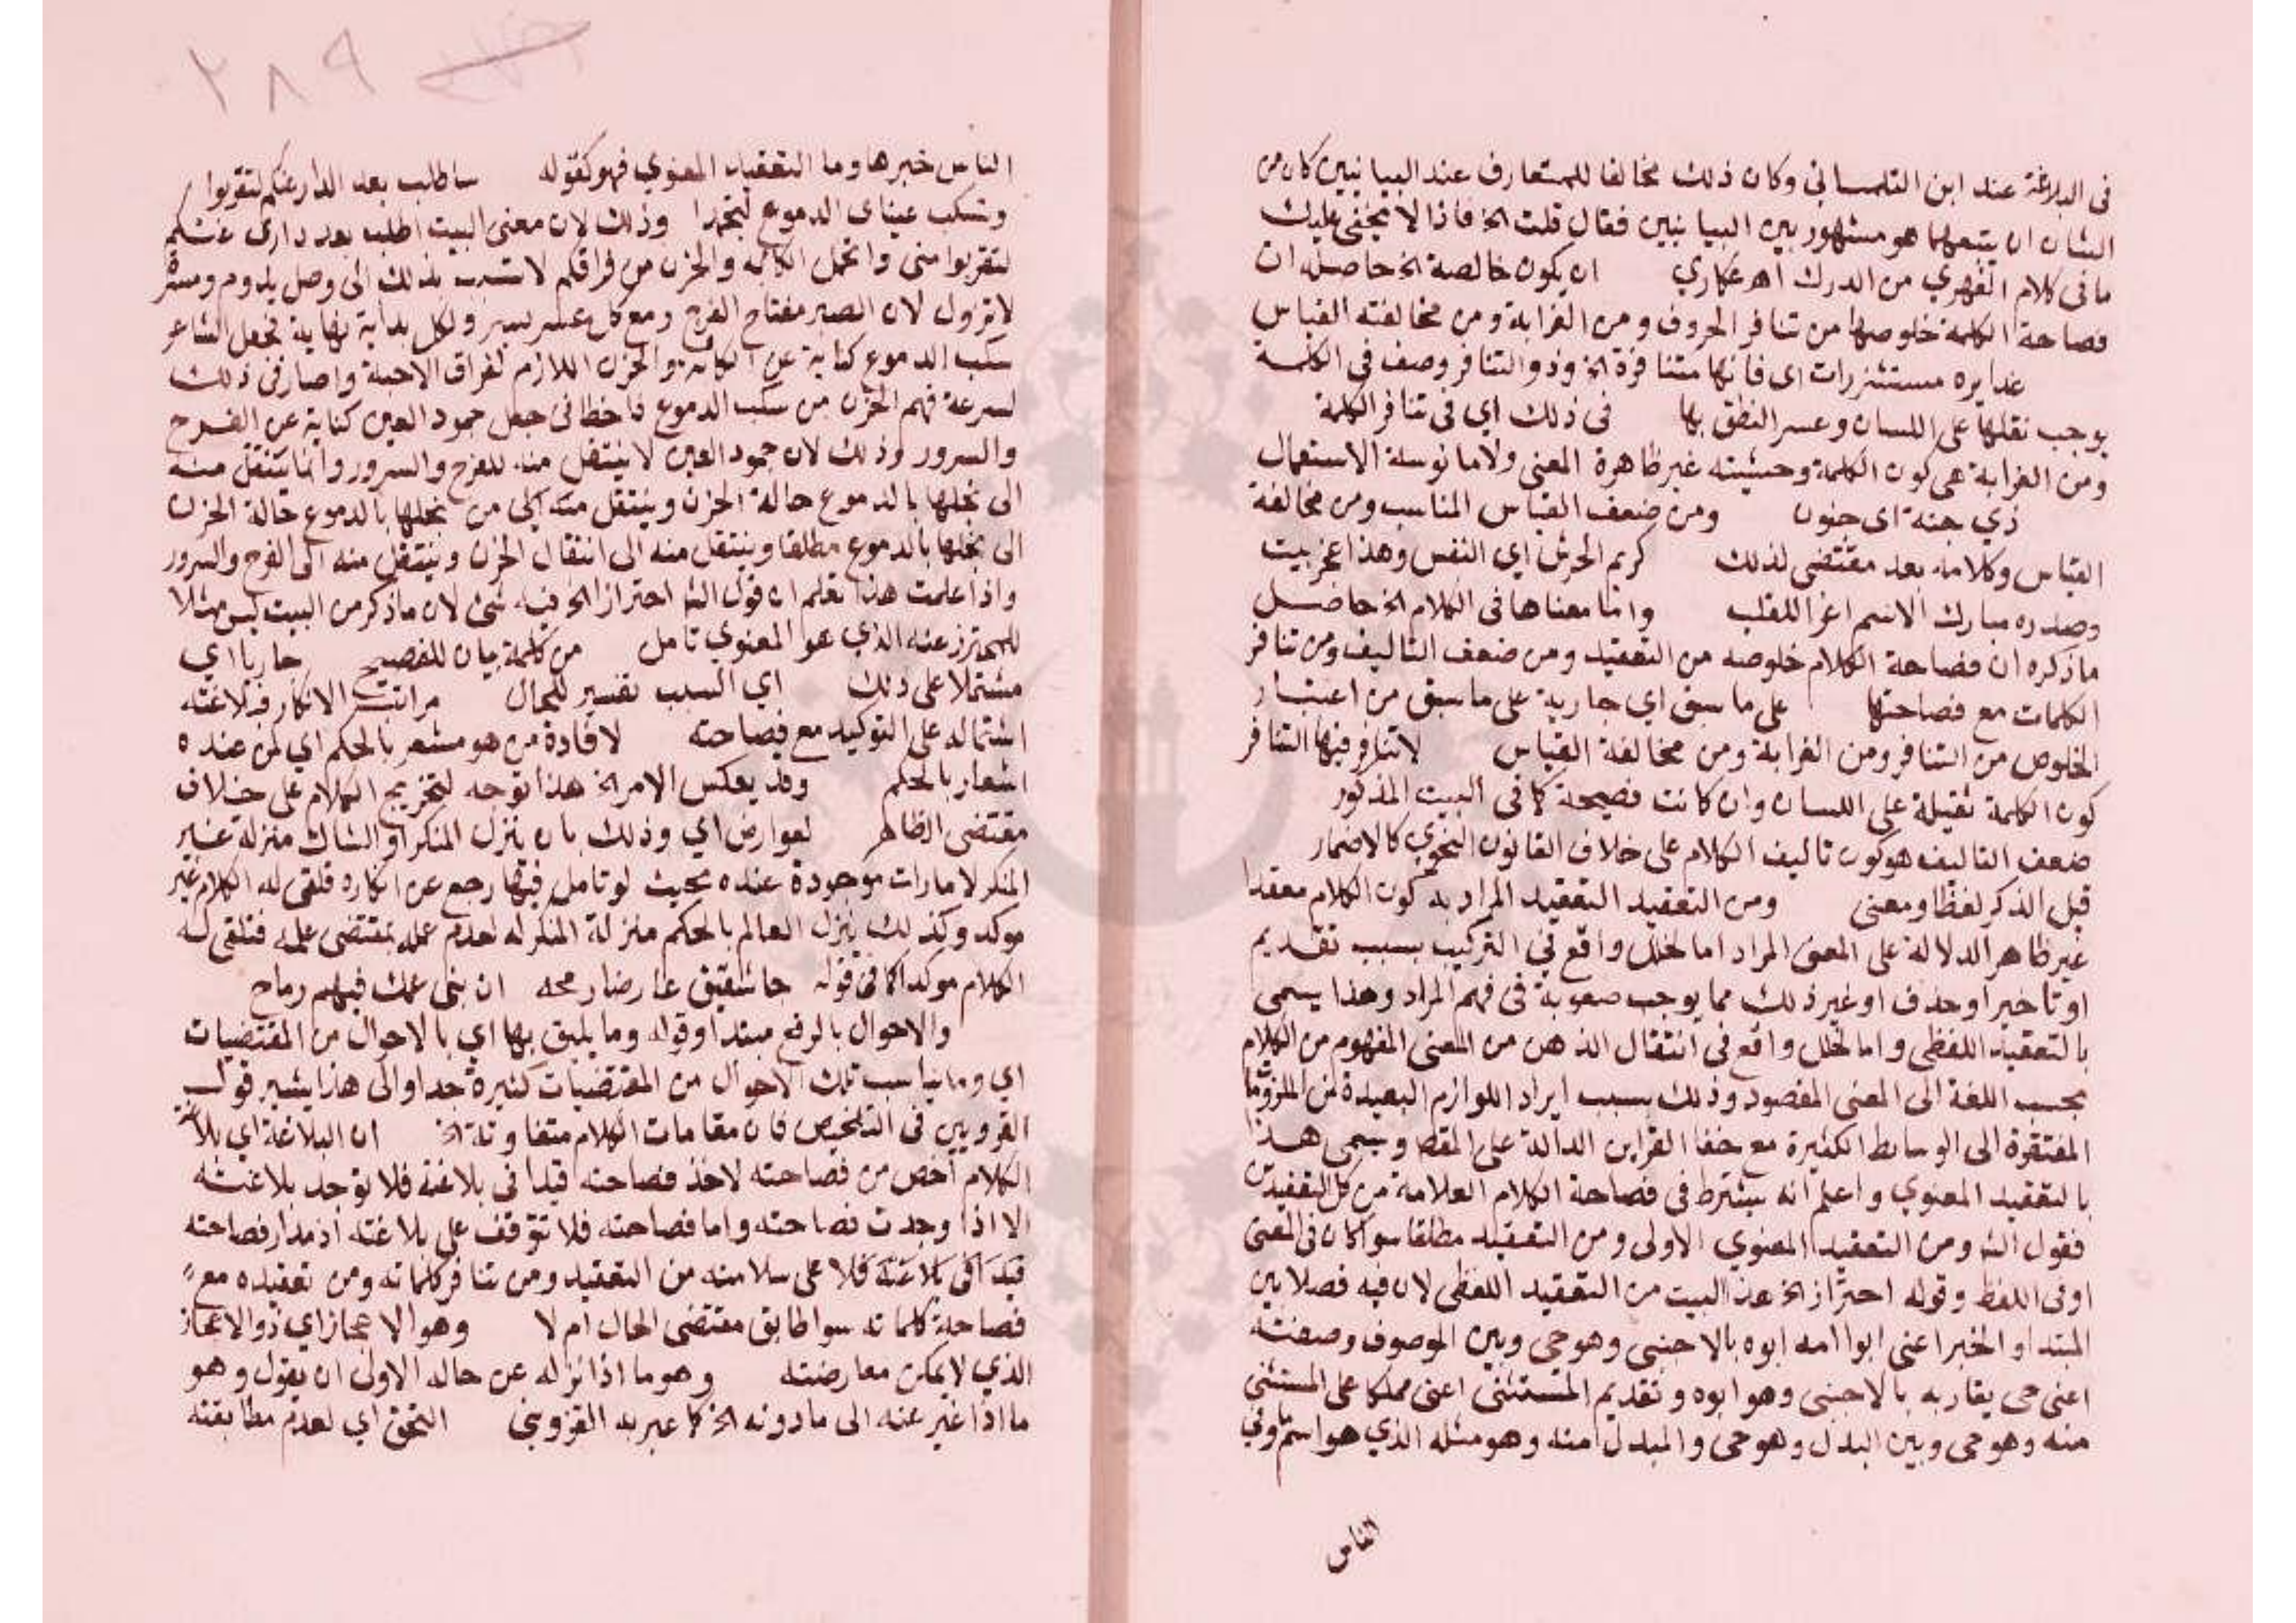 في البلاغة عند ابن التلمساني وكان ذلك مخالفا للمتعارف عند البيانيين كان من
الشان ان يتبعهما هو مشهور بين البيانيين فقال قلت الخ فاذا لا يخفى عليك
ما في كلام الفهري من الدرك اهـ عكاري ان يكون خالصة الخ حاصله ان
فصاحة الكلمة خلوصها من تنافر الحروف ومن الغرابة ومن مخالفته القياس
غدايره مستشزرات اي فانها متنافرة الخ وذو التنافر وصف في الكلمة
يوجب ثقلها على اللسان وعسر النطق بها في ذلك اي في تنافر الكلمة
ومن الغرابة هي كون الكلمة وحشيته غير ظاهرة المعنى ولا مانوسة الاستعمال
ذي جنة اي جنون ومن ضعف القياس المناسب ومن مخالفة
القياس وكلامه بعد مقتضى لذلك كريم الجرشي اي النفس وهذا عجز بيت
وصدره مبارك الاسم اغر اللقب وانا معناها في الكلام الخ حاصل
ما ذكره ان فصاحة الكلام خلوصه من التعقيد ومن ضعف التاليف ومن تنافر
الكلمات مع فصاحتها على ما سبق اي جارية على ما سبق من اعتبار
الخلوص من التنافر ومن الغرابة ومن مخالفة القياس لا تنافر فيها التنافر
كون الكلمة ثقيلة على اللسان وان كانت فصيحة كما في البيت المذكور
ضعف التاليف هو كون تاليف الكلام على خلاف القانون النحوي كالاضمار
قبل الذكر لفظا ومعنى ومن التعقيد التعقيد المراد به كون الكلام معقدا
غير ظاهر الدلالة على المعنى المراد اما لخلل واقع في التركيب بسبب تقديم
او تاخير او حذف او غير ذلك مما يوجب صعوبة في فهم المراد وهذا يسمى
بالتعقيد اللفظي واما لخلل واقع في انتقال الذهن من المعنى المفهوم من الكلام
بحسب اللغة الى المعنى المقصود وذلك بسبب ايراد اللوازم البعيدة
المفتقرة الى الوسايط الكثيرة مع خفا القراين الدالة على المقصد ويسمى هذا
بالتعقيد المعنوي واعلم انه يشترط في فصاحة الكلام العلامة من كل التعقيدين
فقول الشه ومن التعقيد المعنوي الاولى ومن التعقيد مطلقا سوا كان في المعنى
او في اللفظ وقوله احتراز الخ عن البيت من التعقيد اللفظي لان فيه فصلا بين
المبتدا والخبر اعني ابوا امه ابوه بالاجنبي وهو حي وبين الموصوف وصفته
اعني حي يقاربه بالاجنبي وهو ابوه وتقديم المستثنى اعني مملكا على المستثنى
منه وهو حي وبين البدل وهو حي والمبدل منه وهو مثله الذي هو اسم ما وفي
الناس
٢٨٩
الناس خبرها وما التعقيد المعنوي فهو كقوله ساطلب بعد الدار عنكم لتقربوا
وتسكب عيناي الدموع لتجمدا وذلك لان معنى البيت اطلب بعد داري عنكم
لتقربوا مني واتحمل الكابة والحزن من فراقكم لاتسبب بذلك الى وصل يدوم ومسرة
لا تزول لان الصبر مفتاح الفرج ومع كل عسر يسير ولكل بداية نهاية فجعل الشاعر
سكب الدموع كناية عن الكابة والحزن اللازم لفراق الاحبة واصار في ذلك
لسرعة فهم الحزن من سكب الدموع فاخطا في جعل جمود العين كناية عن الفرح
والسرور وذلك لان جمود العين لا ينتقل منه للفرح والسرور وانما ينتقل منه
الى بخلها بالدموع حالة الحزن وينتقل منه الى من بخلها بالدموع حالة الحزن
الى بخلها بالدموع مطلقا وينتقل منه الى انتقال الحزن وينتقل منه الى الفرح والسرور
واذا علمت هذا تعلم ان قول الشه احترازا الخ فيه شئ لان ما ذكر من البيت ليس مثالا
للمحترز عنه الذي هو المعنوي تامل من كلمة بيان للفصيح جاريا اي
مشتملا على ذلك اي السبب تفسير للحال مراتب الانكار فبلاغته
اشتماله على التوكيد مع فصاحته لافادة من هو مشعر بالحكم اي لمن عنده
اشعار بالحكم وقد يعكس الامر الخ هذا توجه لتخريج الكلام على خلاف
مقتضى الظاهر لعوارض اي وذلك بان ينزل المنكر او الشاك منزلة غير
المنكر لامارات موجودة عنده بحيث لو تامل فيها رجع عن انكاره فلقى له الكلام غير
موكد وكذلك ينزل العالم بالحكم منزلة المنكر له لعدم عمله بمقتضى علمه فتلقى له
الكلام موكدا كما في قوله جا شقيق عارضا رمحه ان بني عمك فيهم رماح
والاحوال بالرفع مبتدا وقوله وما يليق بها اي بالاحوال من المقتضيات
اي وما يناسب تلك الاحوال من المقتضيات كثيرة جدا والى هذا يشير قول
القزويني في التلخيص فان مقامات الكلام متفاوتة الخ ان البلاغة اي بلاغة
الكلام اخص من فصاحته لاخذ فصاحته قيدا في بلاغته فلا توجد بلاغته
الا اذا وجدت فصاحته واما فصاحته فلا تتوقف على بلاغته اذ مدار فصاحته
على سلامته من التعقيد ومن تنافر كلماته ومن تعقيده مع
فصاحة كلماته سوا طابق مقتضى الحال ام لا وهو الاعجاز اي ذو الاعجاز
الذي لا يمكن معارضته وهو ما اذا نزل عن حاله الاولى ان يقول وهو
ما اذا غير عنه الى ما دونه الخ كما عبر به القزويني التحق اي لعدم مطابقته